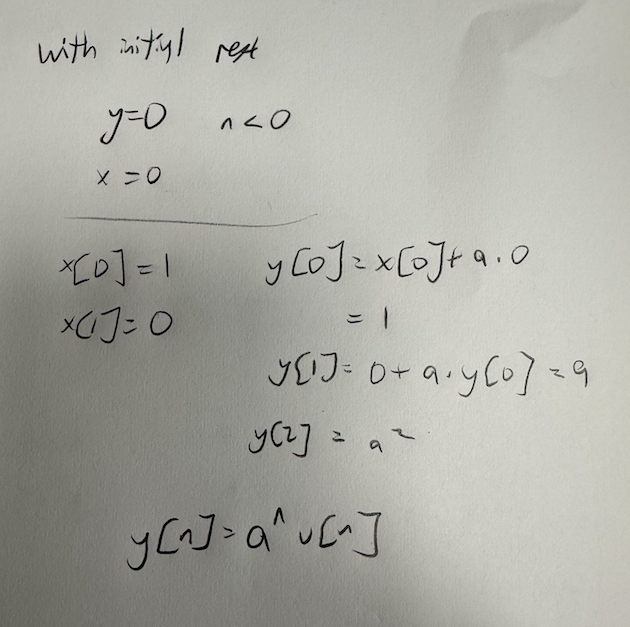 with initial rest
y=0 n<0
x=0
x[0]=1 y[0]=x[0]+a.0
x[1]=0 =1
y[1]=0+a.y[0]=a
y[2]=a²
y[n]=aⁿu[n]